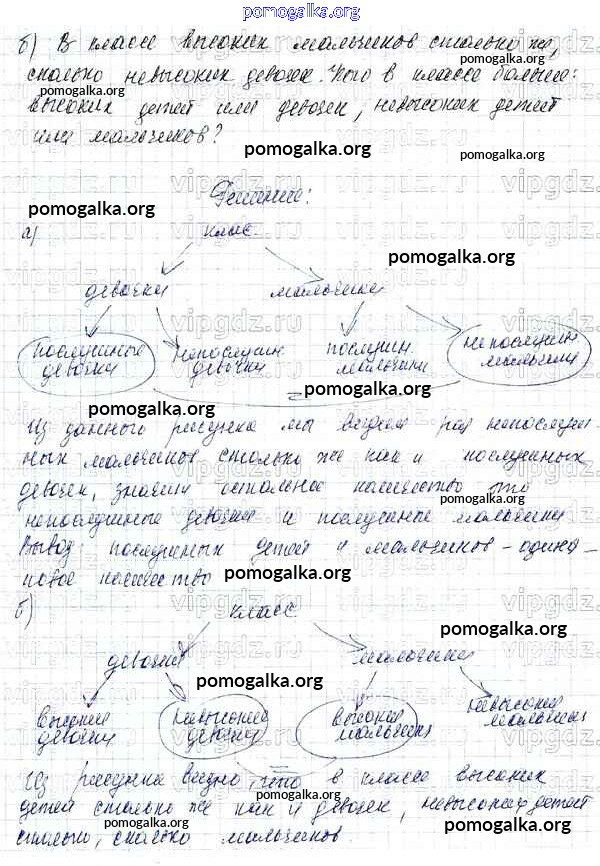 pomogalka.org
б) В классе высоких мальчиков столько же,
сколько невысоких девочек. Кого в классе больше:
высоких детей или девочек, невысоких детей
или мальчиков?
pomogalka.org
pomogalka.org
vipgdz.ru
Решение:
pomogalka.org
а) класс
pomogalka.org
девочки мальчики
vipgdz.ru
послушные девочки
непослушн. девочки
послушн. мальчики
непослушн. мальчики
=
pomogalka.org
pomogalka.org
Из данного рисунка мы видим непослуш-
ных мальчиков столько же как и послушных
девочек, значит остальное количество это
pomogalka.org
непослушные девочки и послушные мальчики
Вывод: послушных детей и мальчиков - одина-
ковое количество
pomogalka.org
б) класс
pomogalka.org
девочки мальчики
pomogalka.org
высокие девочки
невысокие девочки
высокие мальчики
невысокие мальчики
=
Из рисунка видно, что в классе высоких
pomogalka.org
детей столько же как и девочек, невысоких детей
столько, сколько мальчиков.
pomogalka.org